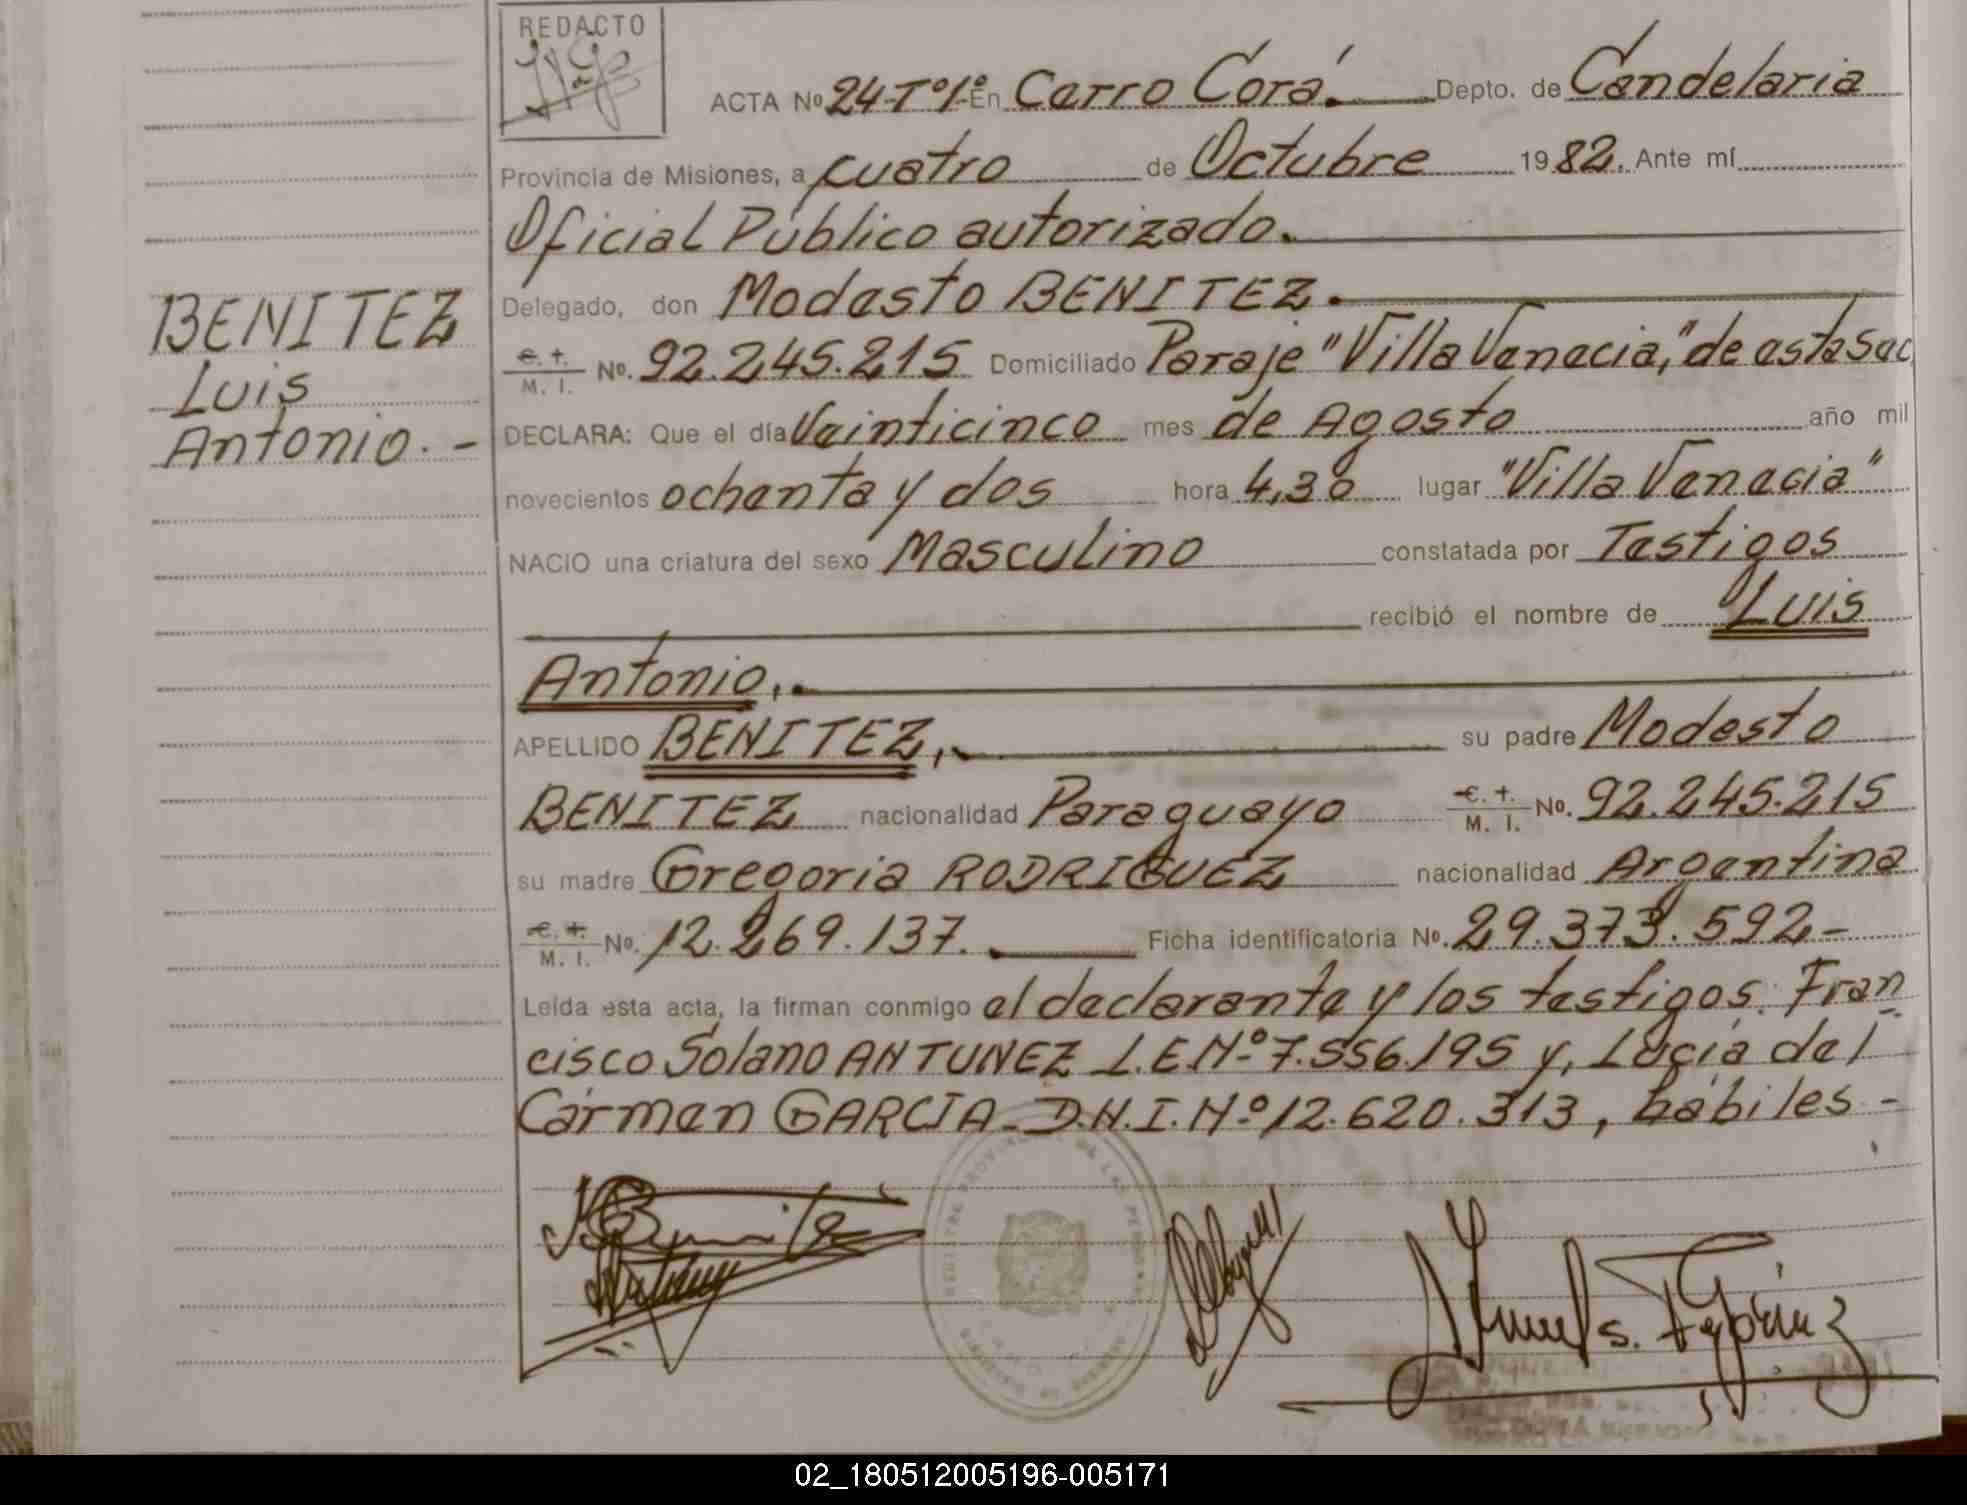 REDACTO
ACTA Nº 24-Tº1º En Cerro Corá. Depto. de Candelaria
Provincia de Misiones, a cuatro de Octubre 1982. Ante mí
Oficial Público autorizado.
Delegado, don Modesto BENITEZ.
C. I. M. I. No. 92.245.215 Domiciliado Paraje "Villa Venecia," de esta Sec
BENITEZ
Luis
Antonio. -
DECLARA: Que el día Veinticinco mes de Agosto año mil
novecientos ochenta y dos hora 4,30 lugar "Villa Venecia"
NACIO una criatura del sexo Masculino constatada por Testigos
recibió el nombre de Luis
Antonio,.
APELLIDO BENITEZ, su padre Modesto
BENITEZ nacionalidad Paraguayo C. I. M. I. No. 92.245.215
su madre Gregoria RODRIGUEZ nacionalidad Argentina
C. I. M. I. No. 12.269.137. Ficha identificatoria No. 29.373.592-
Leída esta acta, la firman conmigo el declarante y los testigos: Fran
cisco Solano ANTUNEZ L.E.Nº 7.556.195 y, Lucía del
Cármen GARCIA - D.N.I. Nº 12.620.313, hábiles -
02_180512005196-005171